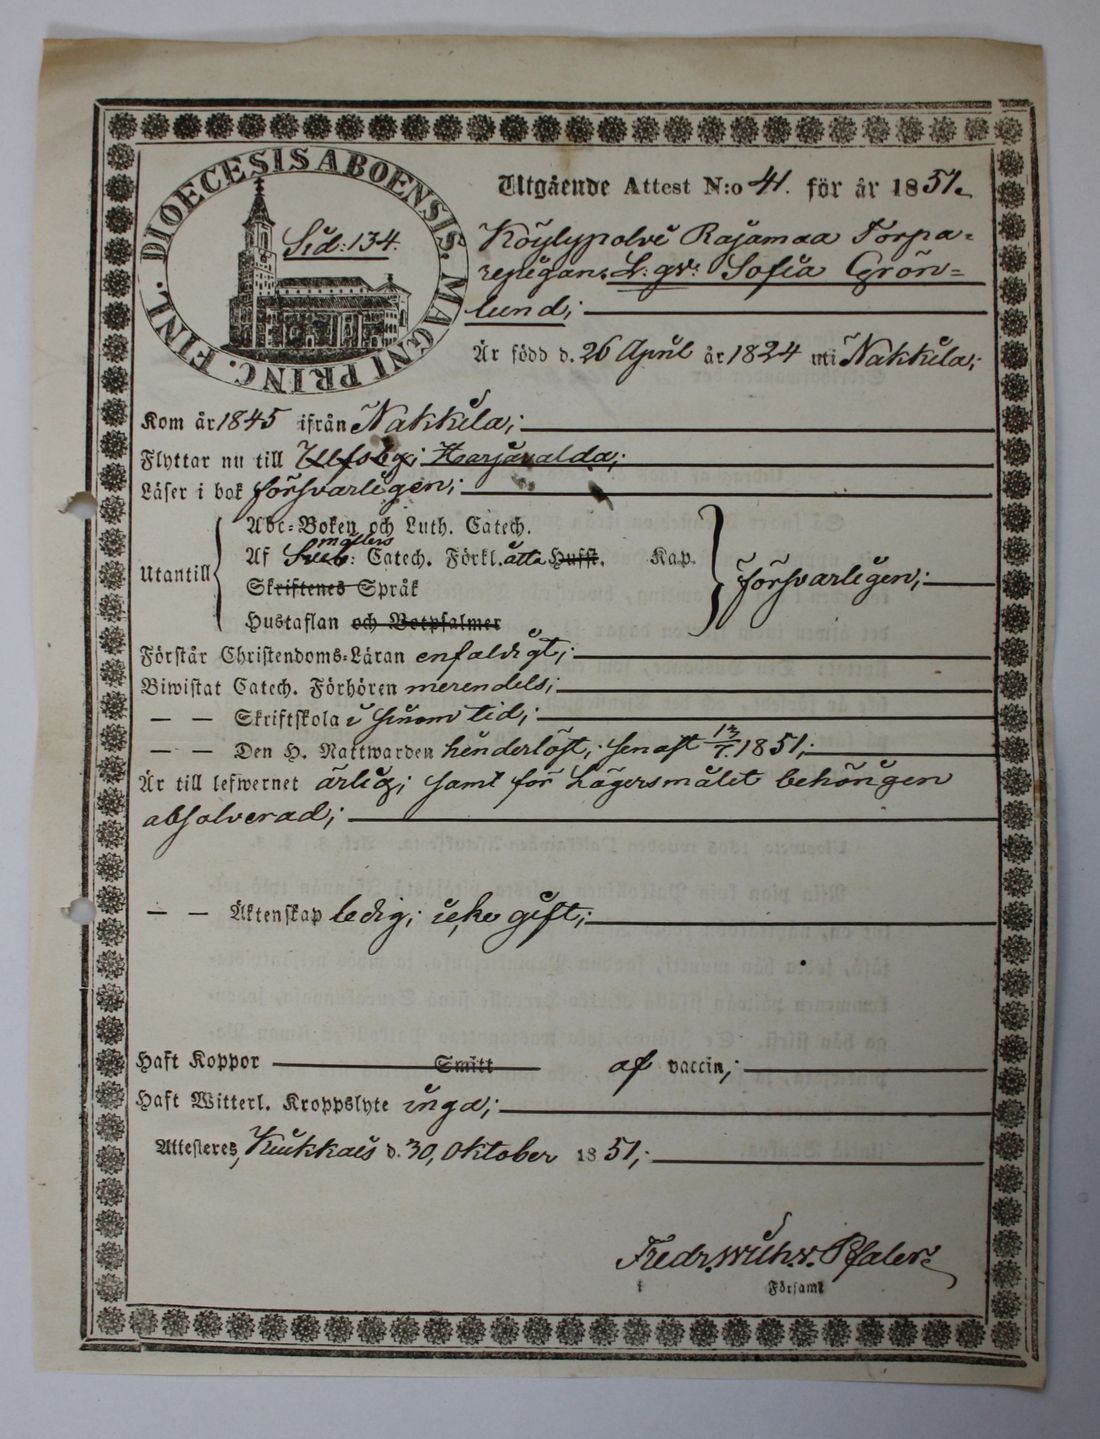 DIOECESIS ABOENSIS. MAGNI PRINC. FINL.
Sid: 134.
Utgående Attest N:o 41. för år 1851.
Köylypolvi Rajamaa Torpa-
repigan, L. qv: Sofia Grön-
lund;
Är född d. 26 April år 1824 uti Nakkila;
Kom år 1845 ifrån Nakkila;
Flyttar nu till Ulfsby; Harjavalda;
Läser i bok försvarligen;
Abc-Boken och Luth. Catech.
möllers
Utantill Af Sveb: Catech. Förkl. åtta Hufst. Kap. försvarligen;
Skriftenes Språk
Hustaflan och Botpsalmer
Förstår Christendoms-Läran enfaldigt;
Biwistat Catech. Förhören merendels;
— — Skriftskola i sinom tid;
— — Den H. Nattwarden hinderlöst; senast 13/7. 1851;
Är till lefwernet ärlig; samt för Lägersmålet behörigen
absolverad;
— — Äktenskap ledig; icke gift;
Haft Koppor Smitt af vaccin;
Haft Witterl. Kroppslyte inga;
Attesteras, Kiukkais d. 30, Oktober 1851;
Fredr. Wilh. v. Pfaler.
Församl